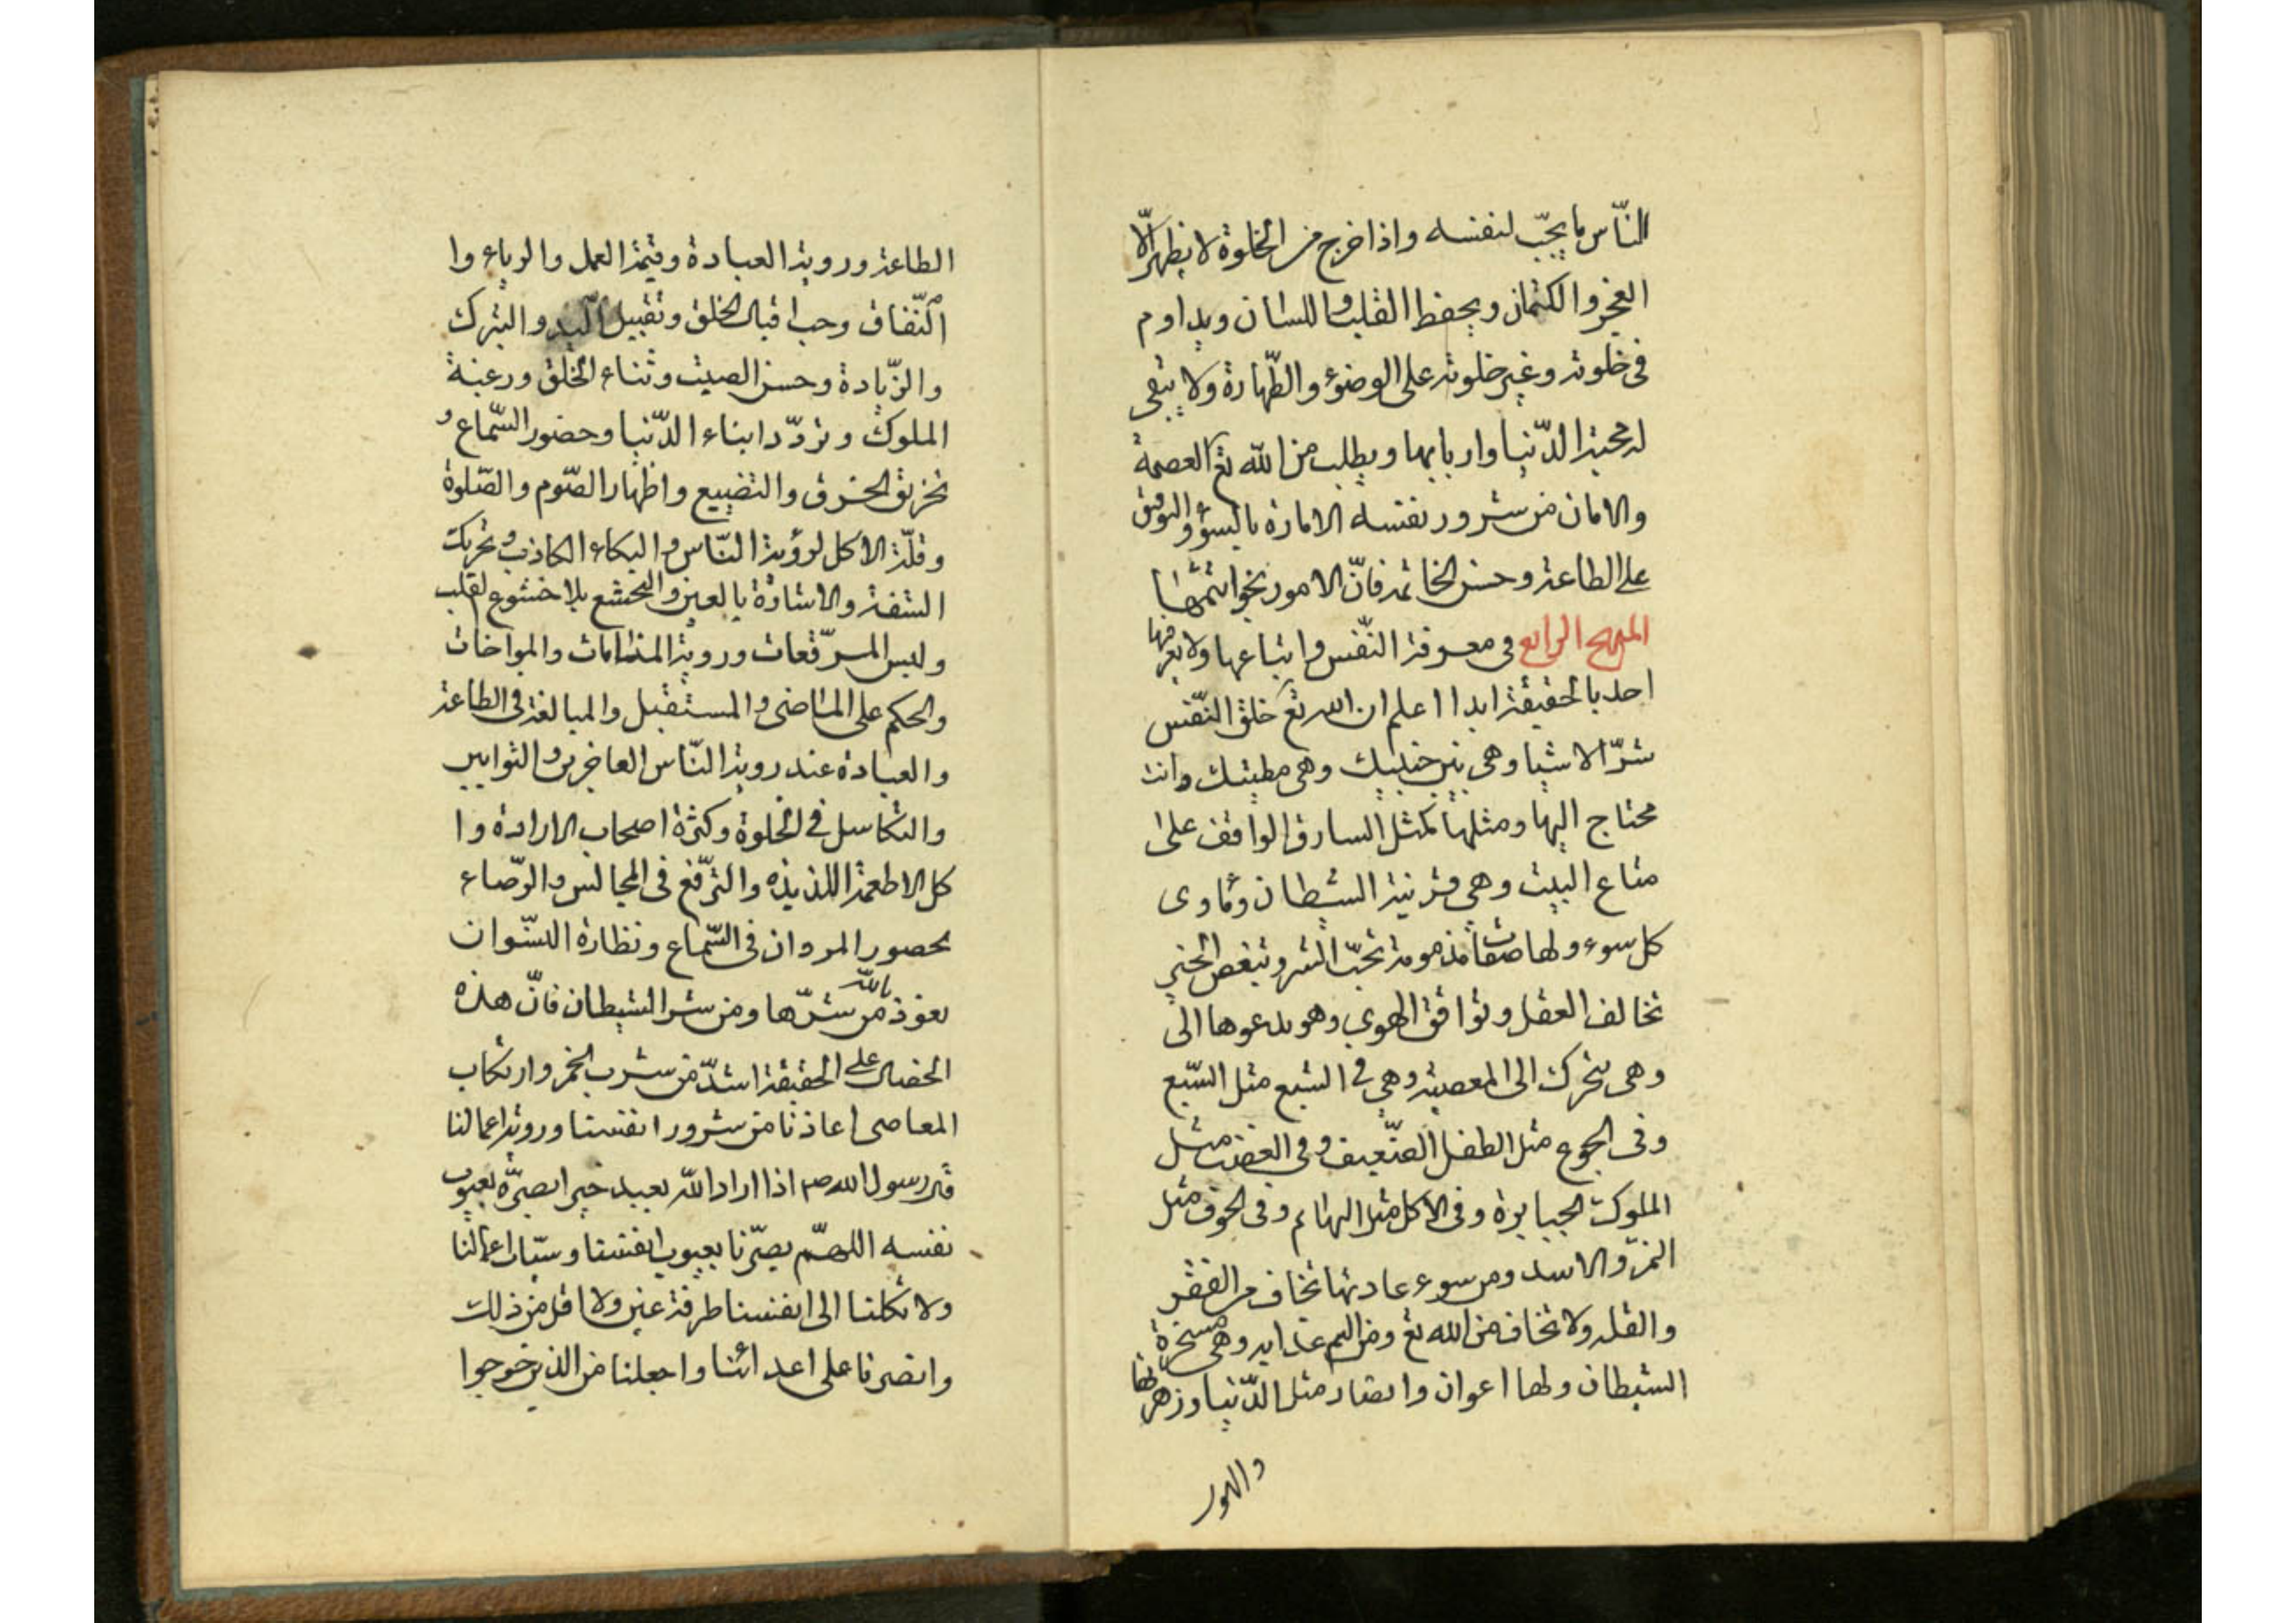 النّاس ما يحبّ لنفسه واذا خرج من الخلوة لا يظهر الّا
العجز والكتمان ويحفظ القلب واللسان ويداوم
فى خلوته وغير خلوته على الوضوء والطّهارة ولا يبقى
له محبة الدّنيا واربابها ويطلب من الله تع العصمة
والامان من شرور نفسه الامارة بالسوء والتوفيق
على الطاعة وحسن الخاتمة فانّ الامور بخواتمها
المنهج الرابع فى معرفة النّفس واتباعها ولا يعرفها
احد بالحقيقة ابدا اعلم ان الله تع خلق النّفس
شرّ الاشيا وهى بين جنبيك وهى مطيتك وانت
محتاج اليها ومثلها كمثل السارق الواقف على
متاع البيت وهى قرنية الشيطان وماوى
كل سوء ولها صفات مذمومة تحبّ الشر وتبغض الخير
تخالف العقل وتوافق الهوى وهو يدعوها الى
وهى تتحرك الى المعصية وهى فى الشبع مثل السّبع
وفى الجوع مثل الطفل الضّعيف وفى الغضب مثل
الملوك الجبابرة وفى الاكل مثل البهائم وفى الخوف مثل
النمر والاسد ومن سوء عادتها تخاف من الفقر
والقلة ولا تخاف من الله تع ومن اليم عذابه وهى مسخرة
الشيطان ولها اعوان وانصار مثل الدّنيا وزهرتها
الطاعة وروية العبادة وقيمة العمل والرياء وا
النّفاق وحب اقبال الخلق وتقبيل اليد والشرك
والزّيادة وحسن الصيت وثناء الخلق ورغبة
الملوك وتردّد ابناء الدّنيا وحضور السّماع و
تخريق الخرق والتضييع واظهار الصّوم والصّلوة
وقلّة الاكل لرؤية النّاس والبكاء الكاذب وتحريك
الشفة والاشارة بالعين والتخشع بلا خشوع لقلب
ولبس المرقّعات وروية المنامات والمواخات
والحكم على الماضى والمستقبل والمبالغة فى الطاعة
والعبادة عند روية النّاس العاجزين والتوابين
والتكاسل فى الخلوة وكثرة اصحاب الارادة وا
كل الاطعمة اللذيذه والترفّع فى المجالس والرّضاء
بحضور المردان فى السّماع ونظارة النسّوان
نعوذ بالله من شرّها ومن شر الشيطان فانّ هذه
الخصال على الحقيقة اشدّ من شرب الخمر وارتكاب
المعاصى اعاذنا من شرور انفسنا وروية اعمالنا
قال رسول الله صم اذا اراد الله بعبد خيرا بصرّه بعيوب
نفسه اللهمّ بصرّنا بعيوب انفسنا وسيّات اعمالنا
ولا تكلنا الى انفسنا طرفة عين ولا اقل من ذلك
وانصرنا على اعدائنا واجعلنا من الذين خرجوا